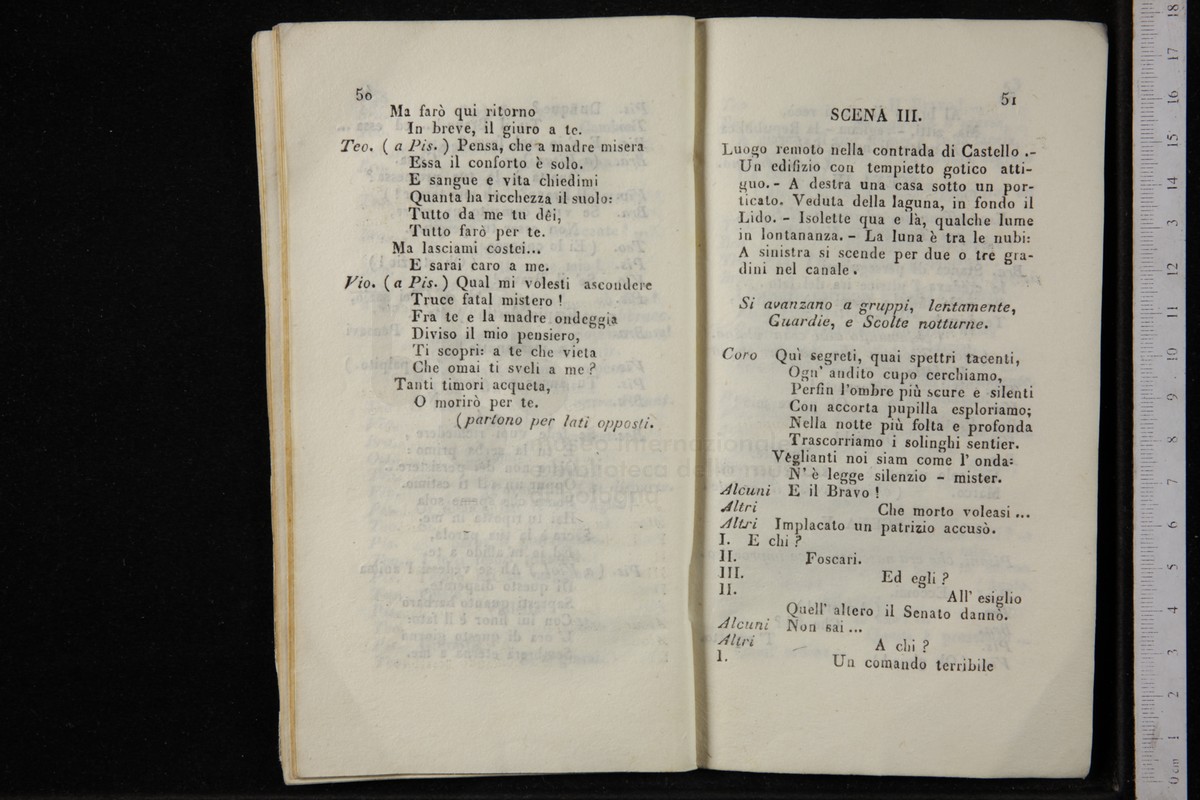 50
Ma farò qui ritorno
In breve, il giuro a te.
Teo. ( a Pis. ) Pensa, che a madre misera
Essa il conforto è solo.
E sangue e vita chiedimi
Quanta ha ricchezza il suolo:
Tutto da me tu dêi,
Tutto farò per te.
Ma lasciami costei...
E sarai caro a me.
Vio. ( a Pis. ) Qual mi volesti ascondere
Truce fatal mistero !
Fra te e la madre ondeggia
Diviso il mio pensiero,
Ti scopri: a te che vieta
Che omai ti sveli a me ?
Tanti timori acqueta,
O morirò per te.
(partono per lati opposti.
51
SCENA III.
Luogo remoto nella contrada di Castello .-
Un edifizio con tempietto gotico atti-
guo. - A destra una casa sotto un por-
ticato. Veduta della laguna, in fondo il
Lido. - Isolette qua e là, qualche lume
in lontananza. - La luna è tra le nubi:
A sinistra si scende per due o tre gra-
dini nel canale .
Si avanzano a gruppi, lentamente,
Guardie, e Scolte notturne.
Coro Quì segreti, quai spettri tacenti,
Ogn' andito cupo cerchiamo,
Perfin l'ombre più scure e silenti
Con accorta pupilla esploriamo;
Nella notte più folta e profonda
Trascorriamo i solinghi sentier.
Veglianti noi siam come l' onda:
N' è legge silenzio - mister.
Alcuni E il Bravo !
Altri Che morto voleasi ...
Altri Implacato un patrizio accusò.
I. E chi ?
II. Foscari.
III. Ed egli ?
II. All' esiglio
Quell' altero il Senato dannò.
Alcuni Non sai ...
Altri A chi ?
I. Un comando terribile
museo internazionale
e biblioteca della musica
di bologna
0 cm 1 2 3 4 5 6 7 8 9 10 11 12 13 14 15 16 17 18